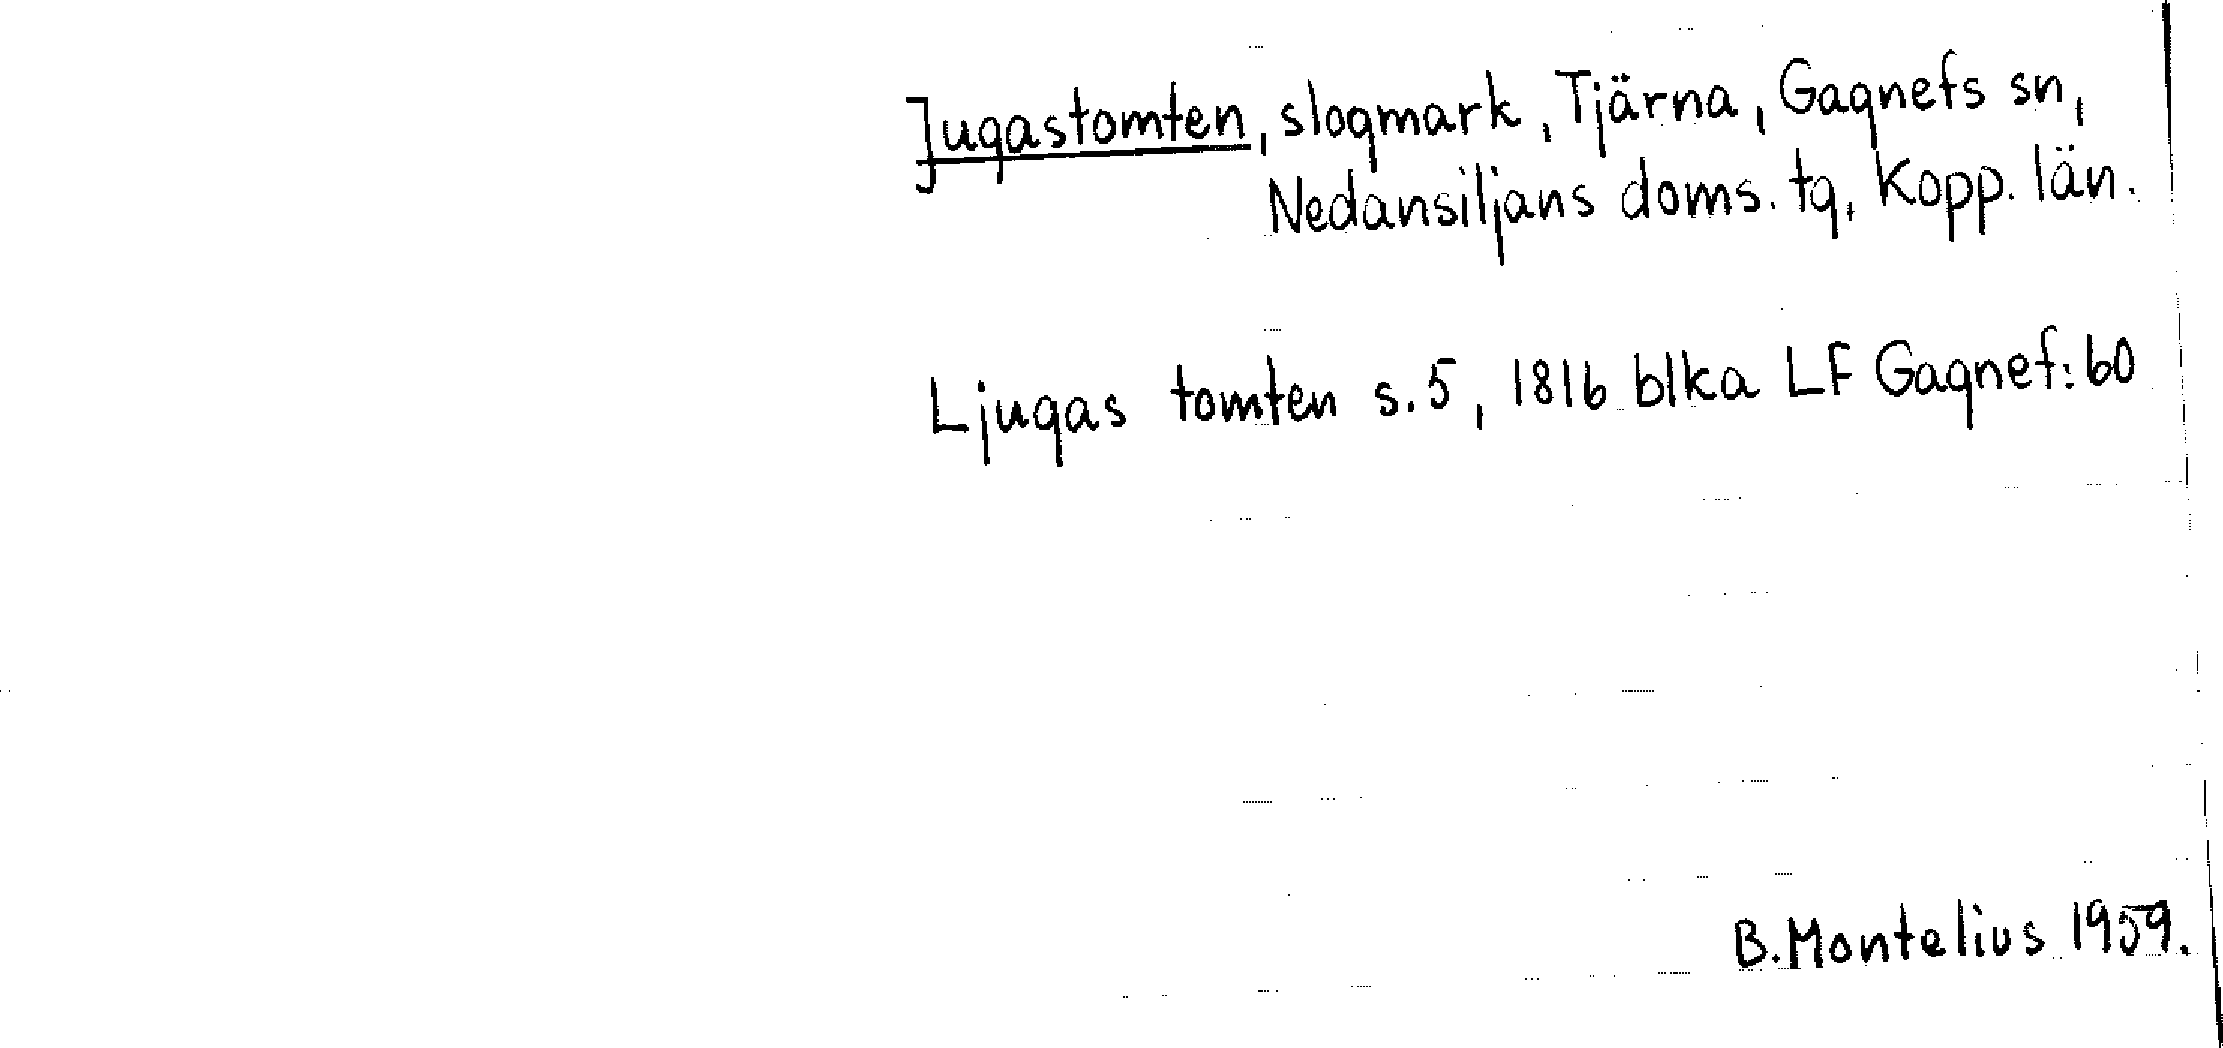 Jugastomten, slogmark, Tjärna, Gagnefs sn,
Nedansiljans doms. tg, Kopp. län.
Ljugas tomten s.5, 1816 blka LF Gagnef: 60
B. Montelius 1959.